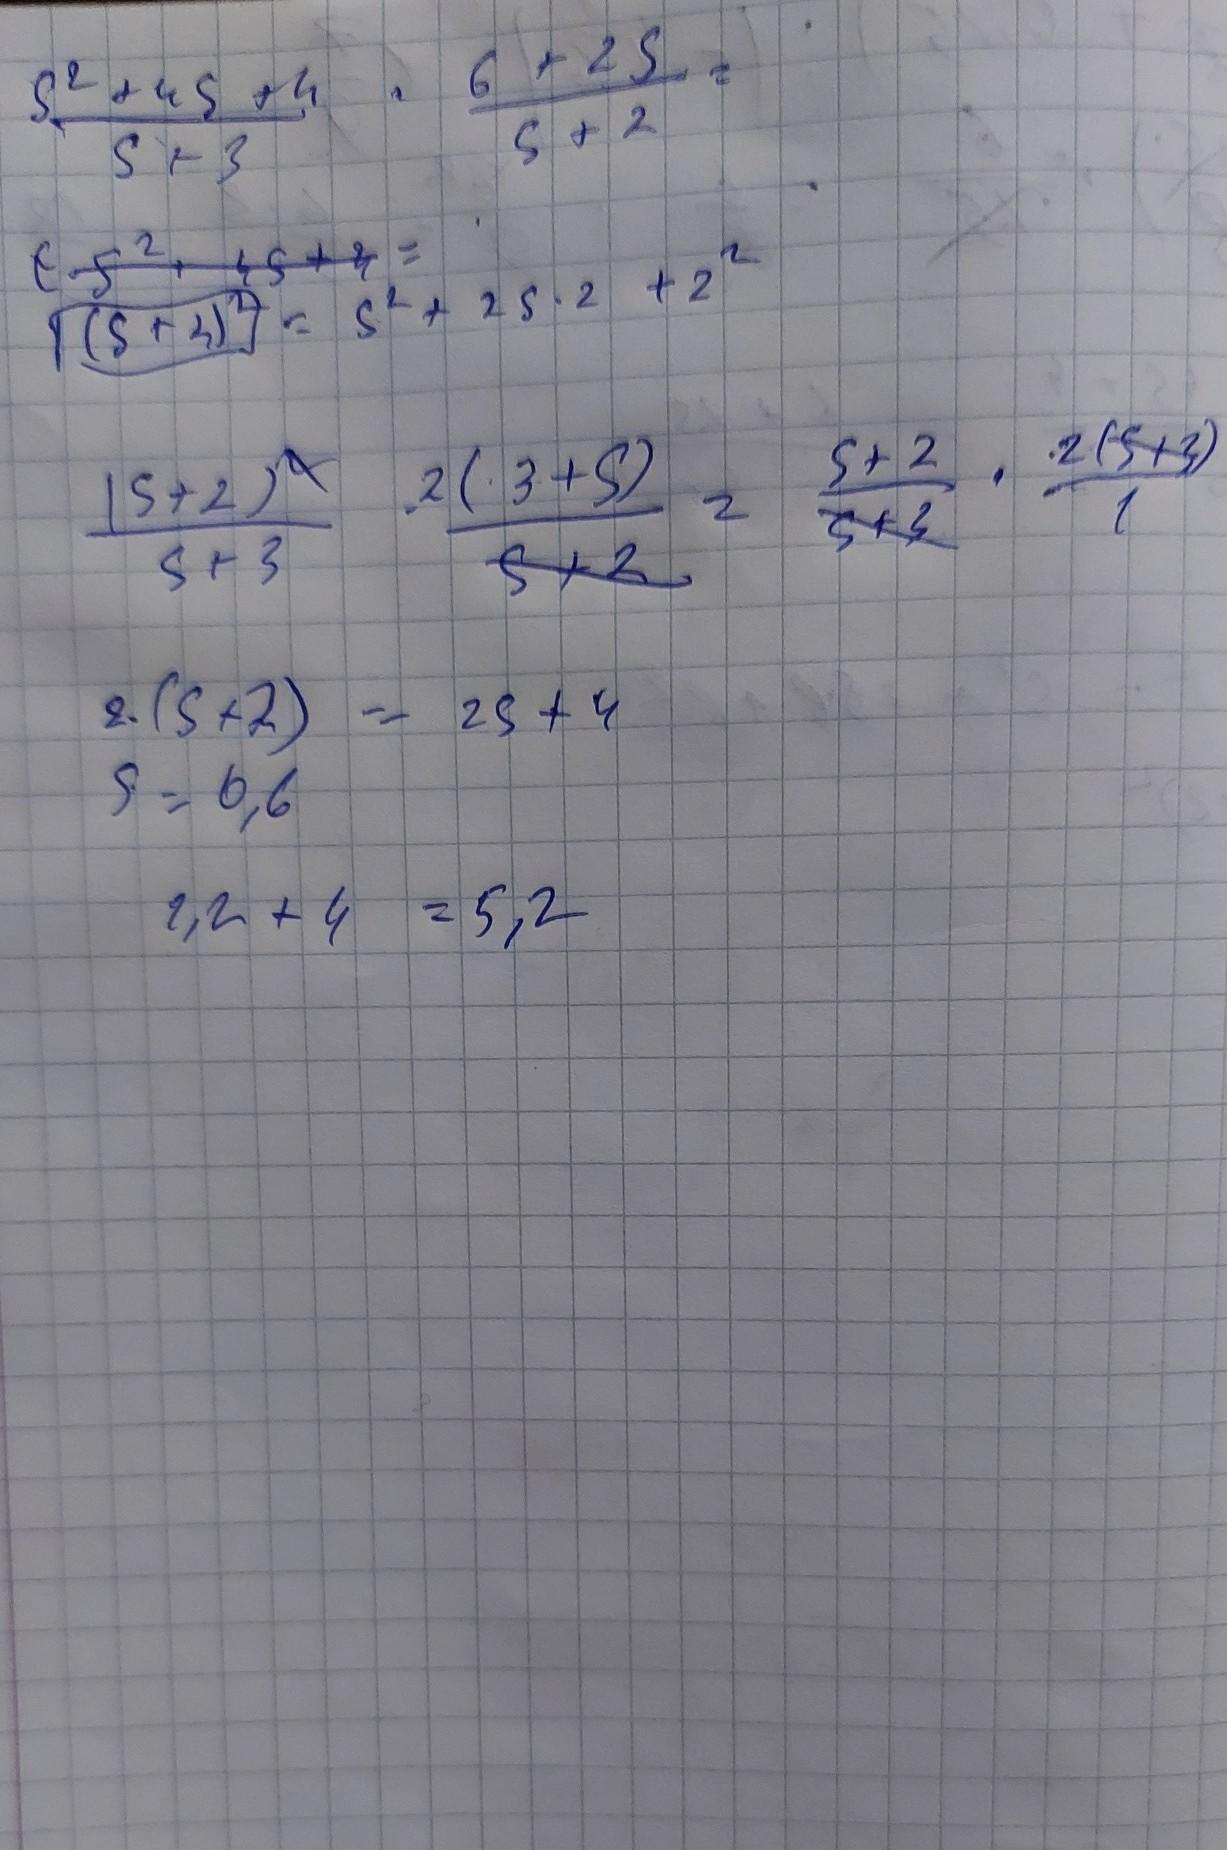 s² + 4s + 4 / s + 3 · 6 + 2s / s + 2 =
s² + 4s + 4 =
(s + 2)² = s² + 2s · 2 + 2²
(s+2)² / s + 3 · 2(3 + s) / s + 2 = s + 2 / s + 3 · 2(s+3) / 1
2·(s+2) = 2s + 4
s = 0,6
1,2 + 4 = 5,2